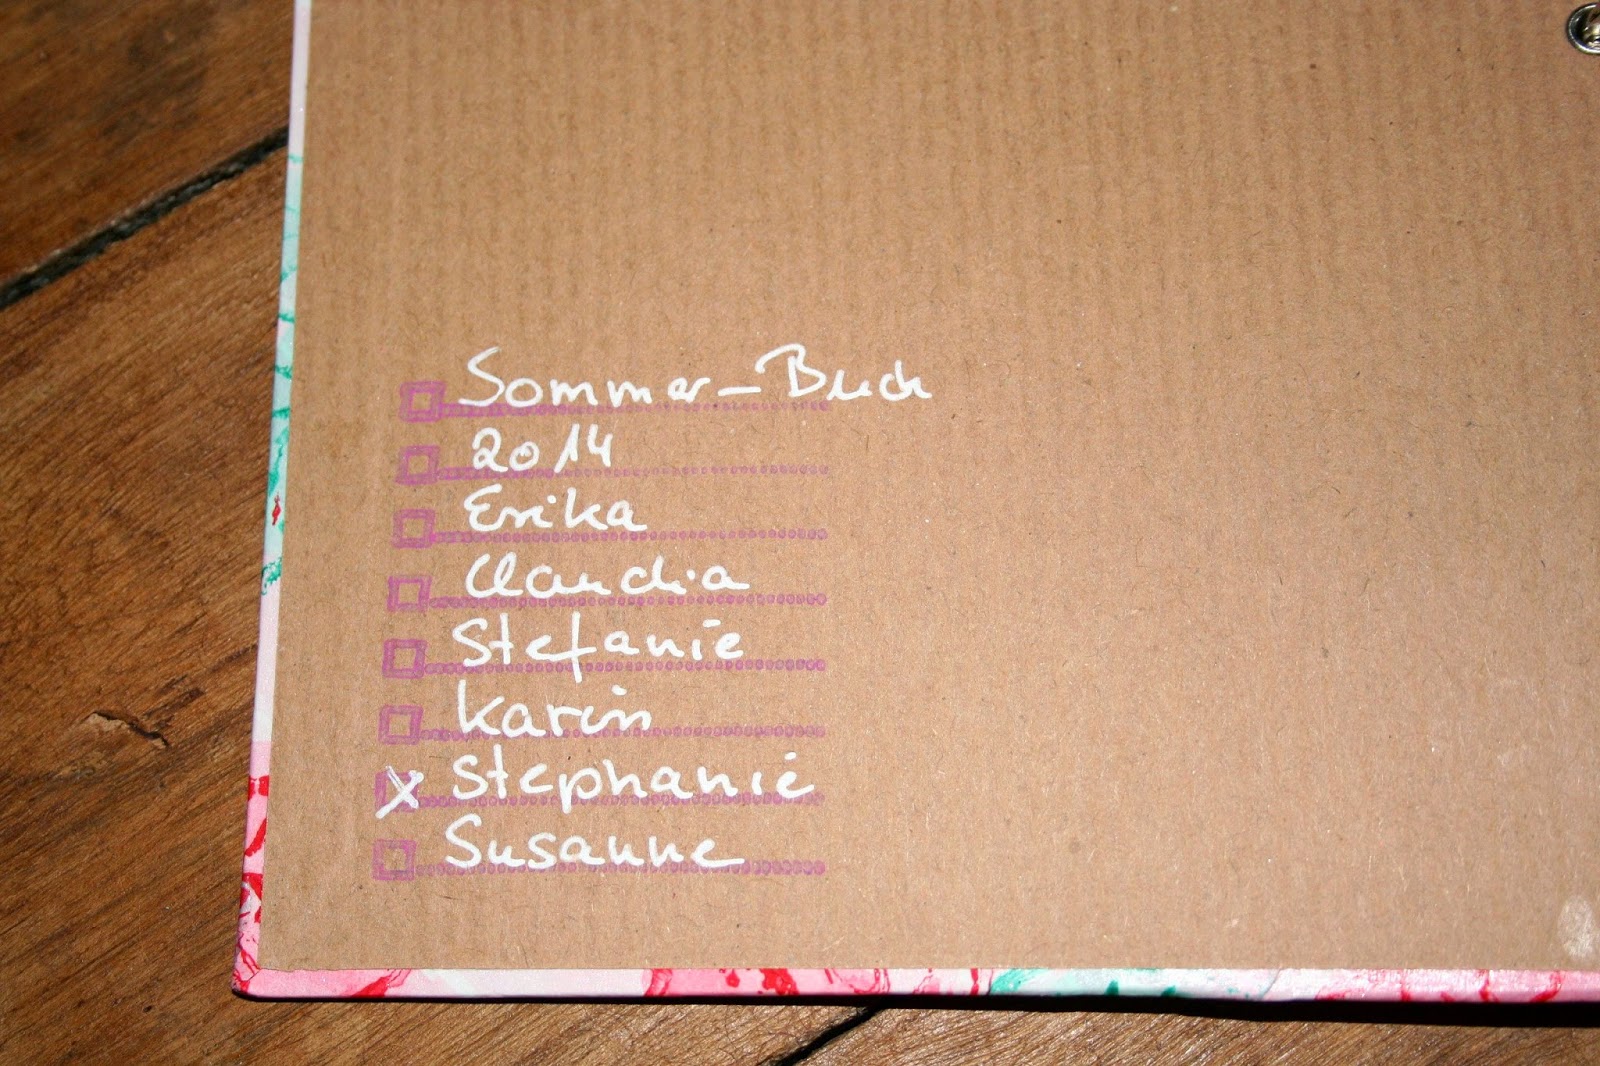 Sommer-Buch
2014
Erika
Claudia
Stefanie
Karin
X Stephanie
Susanne